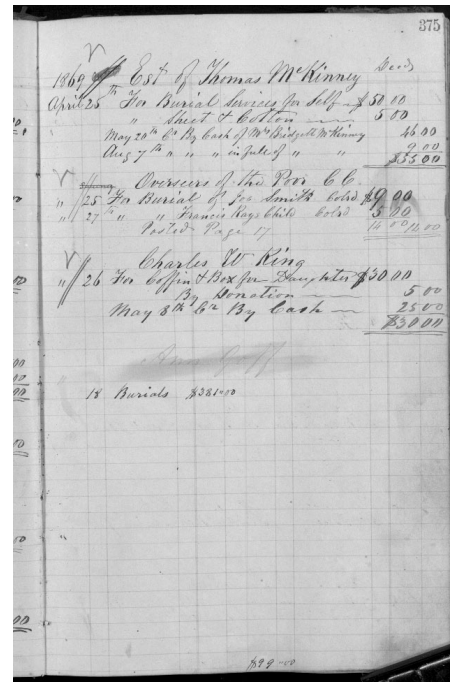 375
1869 Est of Thomas McKinney
April 25th For Burial Services for Self $50.00
" Sheet & Cotton 5 00
May 20th Cr By Cash of Mrs Bridgett McKinney 46 00
Aug 7th " " " in full of " " 9 00
$55.00
Overseers of the Poor C.C.
" 25 For Burial of Jos Smith Colrd $9 00
" 27th " " Francis Rays Child Colrd 5 00
Posted Page 17 14 00
Charles W King
" 26 For Coffin & Box for Daughter $30.00
By Donation 5 00
May 8th Cr By Cash 25 00
$30 00
18 Burials $381.00
$99.00